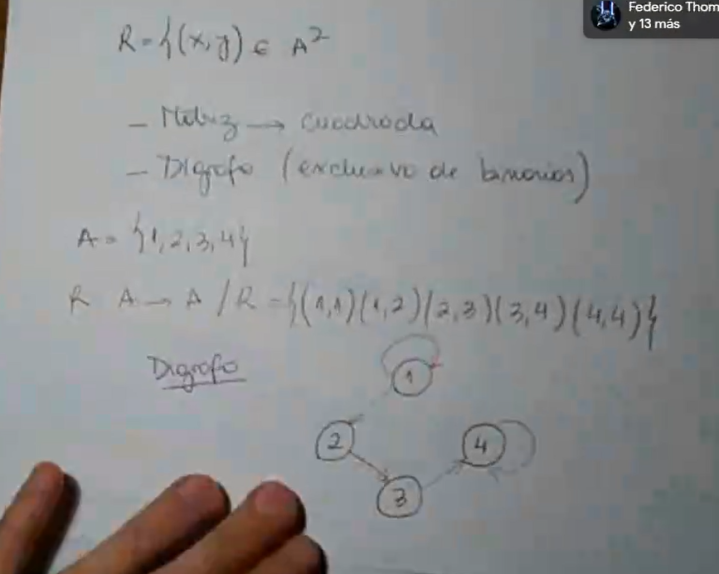 Federico Thom
y 13 más
R = {(x,y) ∈ A²
- Matriz → cuadrada
- Digrafo (exclusivo de binarios)
A = {1,2,3,4}
R A → A / R = {(1,1)(1,2)(2,3)(3,4)(4,4)}
Digrafo
1
2
4
3